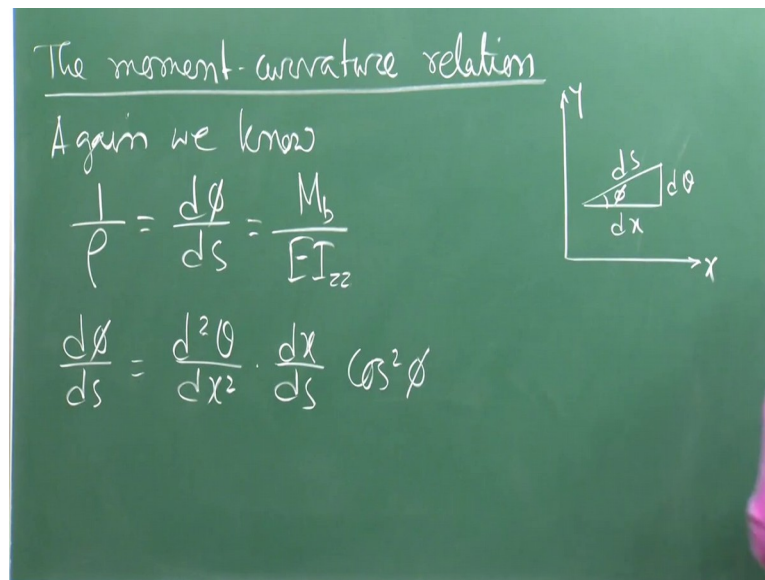 The moment-curvature relation
Again we know
1/ρ = dφ/ds = M_b/EI_zz
dφ/ds = d²υ/dx² · dx/ds cos²φ
Y
ds
φ
dυ
dx
X